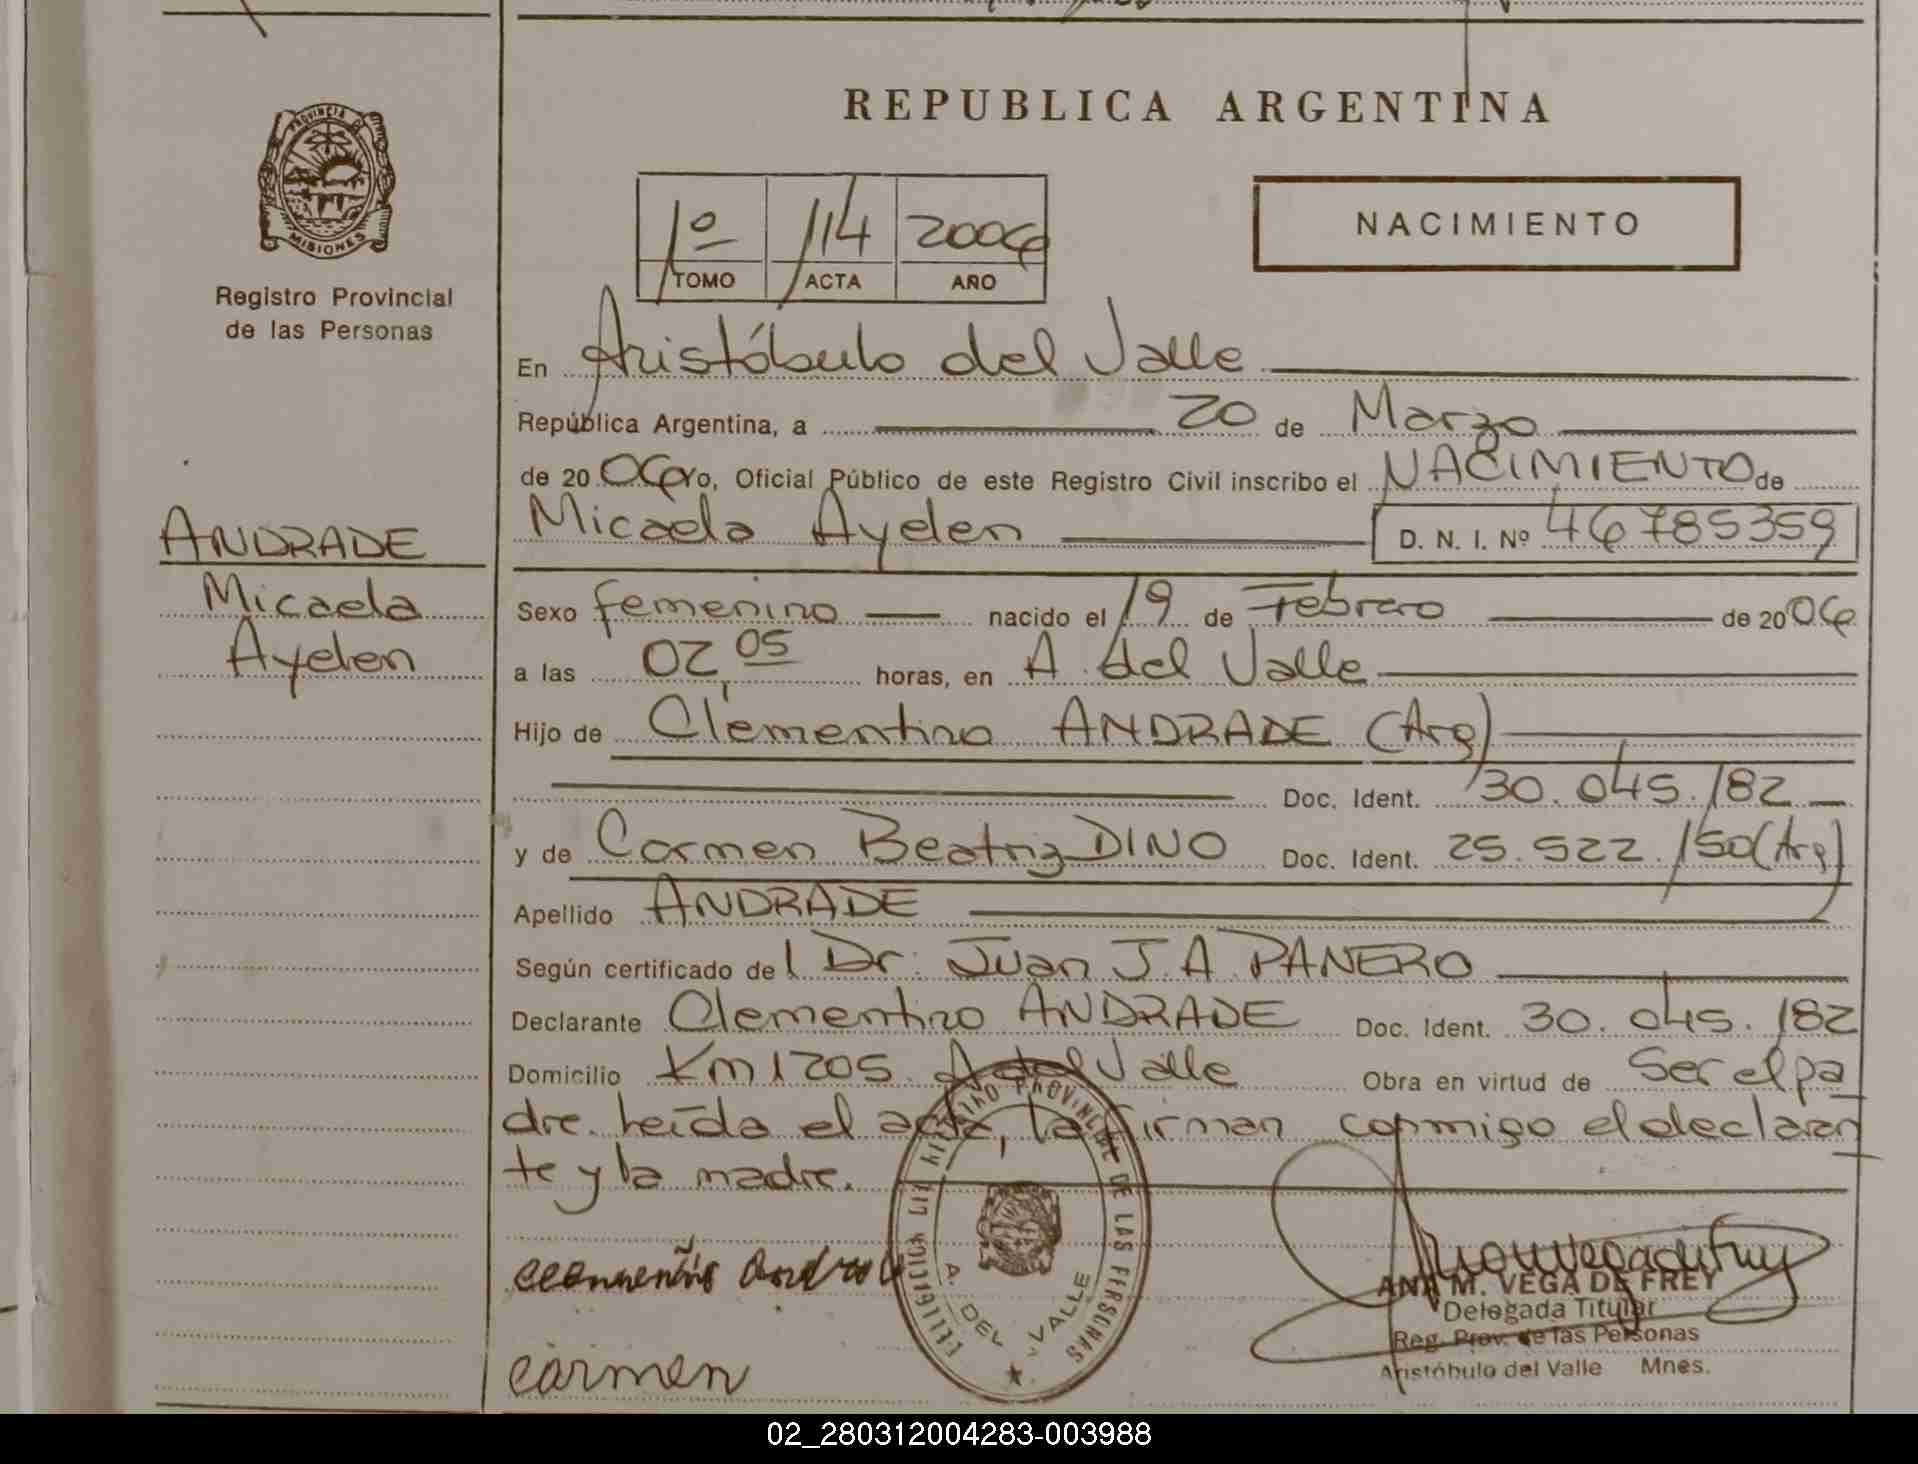 REPUBLICA ARGENTINA
PROVINCIA DE MISIONES
Registro Provincial
de las Personas
1º 114 2006
TOMO ACTA AÑO
NACIMIENTO
En Aristóbulo del Valle
República Argentina, a 20 de Marzo
de 20 06 yo, Oficial Público de este Registro Civil inscribo el NACIMIENTO de
Micaela Ayelen D. N. I. Nº 46785359
ANDRADE
Micaela
Ayelen
Sexo femenino nacido el 19 de Febrero de 20 06
a las 02,05 horas, en A. del Valle
Hijo de Clementino ANDRADE (Arg)
Doc. Ident. 30.045.182
y de Carmen Beatriz DINO Doc. Ident. 25.522.150 (Arg)
Apellido ANDRADE
Según certificado del Dr. Juan J. A. PANERO
Declarante Clementino ANDRADE Doc. Ident. 30.045.182
Domicilio Km 1205. A del Valle Obra en virtud de Ser el pa
dre. Leída el acta, la firman conmigo el declaran
te y la madre.
REGISTRO PROVINCIAL DE LAS PERSONAS
A. DEL VALLE
carmen
ANA M. VEGA DE FREY
Delegada Titular
Reg. Prov. de las Personas
Aristóbulo del Valle Mnes.
02_280312004283-003988